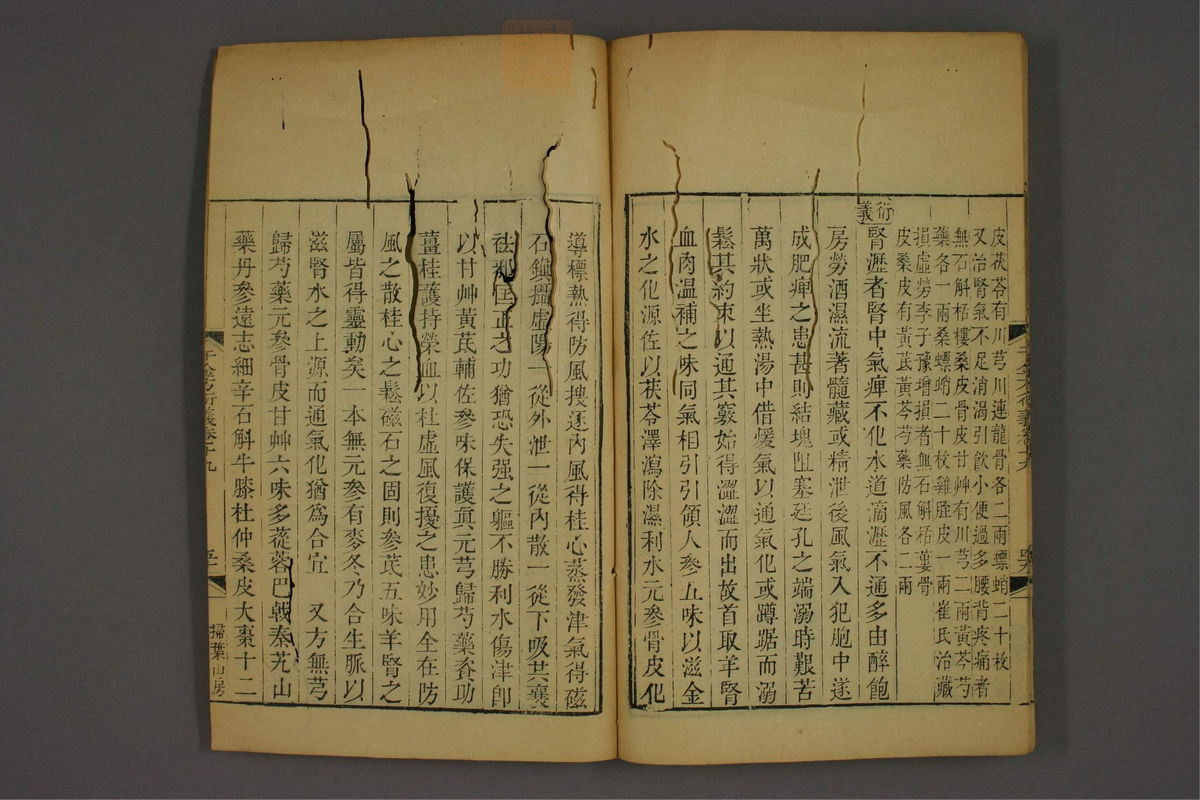 皮茯苓有川芎川連龍骨各二兩螵蛸二十枚
又治腎氣不足消渴引飲小便過多腰背疼痛者
無石斛栝樓桑皮骨皮甘艸有川芎二兩黃芩芍
藥各一兩桑螵蛸二十枚雞䏶皮一兩崔氏治藏
損虛勞李子豫增損者無石斛栝蔞骨
皮桑皮有黃芪黃芩芍藥防風各二兩
衍義
腎瀝者腎中氣痺不化水道滴瀝不通多由醉飽
房勞酒濕流著髓藏或精泄後風氣入犯胞中遂
成肥痺之患甚則結塊阻塞廷孔之端溺時艱苦
萬狀或坐熱湯中借煖氣以通氣化或蹲踞而溺
鬆其約束以通其竅始得澀澀而出故首取羊腎
血肉溫補之味同氣相引引領人參五味以滋金
水之化源佐以茯苓澤瀉除濕利水元參骨皮化
千金方衍義卷十九
導標熱得防風搜逐內風得桂心蒸發津氣得磁
石鎮攝虛陽一從外泄一從內散一從下吸其襄
祛邪匡正之功猶恐失强之軀不勝利水傷津卽
以甘艸黃芪輔佐參味保護眞元芎歸芍藥養功
薑桂護持榮血以杜虛風復擾之患妙用全在防
風之散桂心之鬆磁石之固則參芪五味羊腎之
屬皆得靈動矣一本無元參有麥冬乃合生脈以
滋腎水之上源而通氣化猶爲合宜　又方無芎
歸芍藥元參骨皮甘艸六味多蓯蓉巴戟秦艽山
藥丹參遠志細辛石斛牛膝杜仲桑皮大棗十二
千金方衍義卷十九
掃葉山房